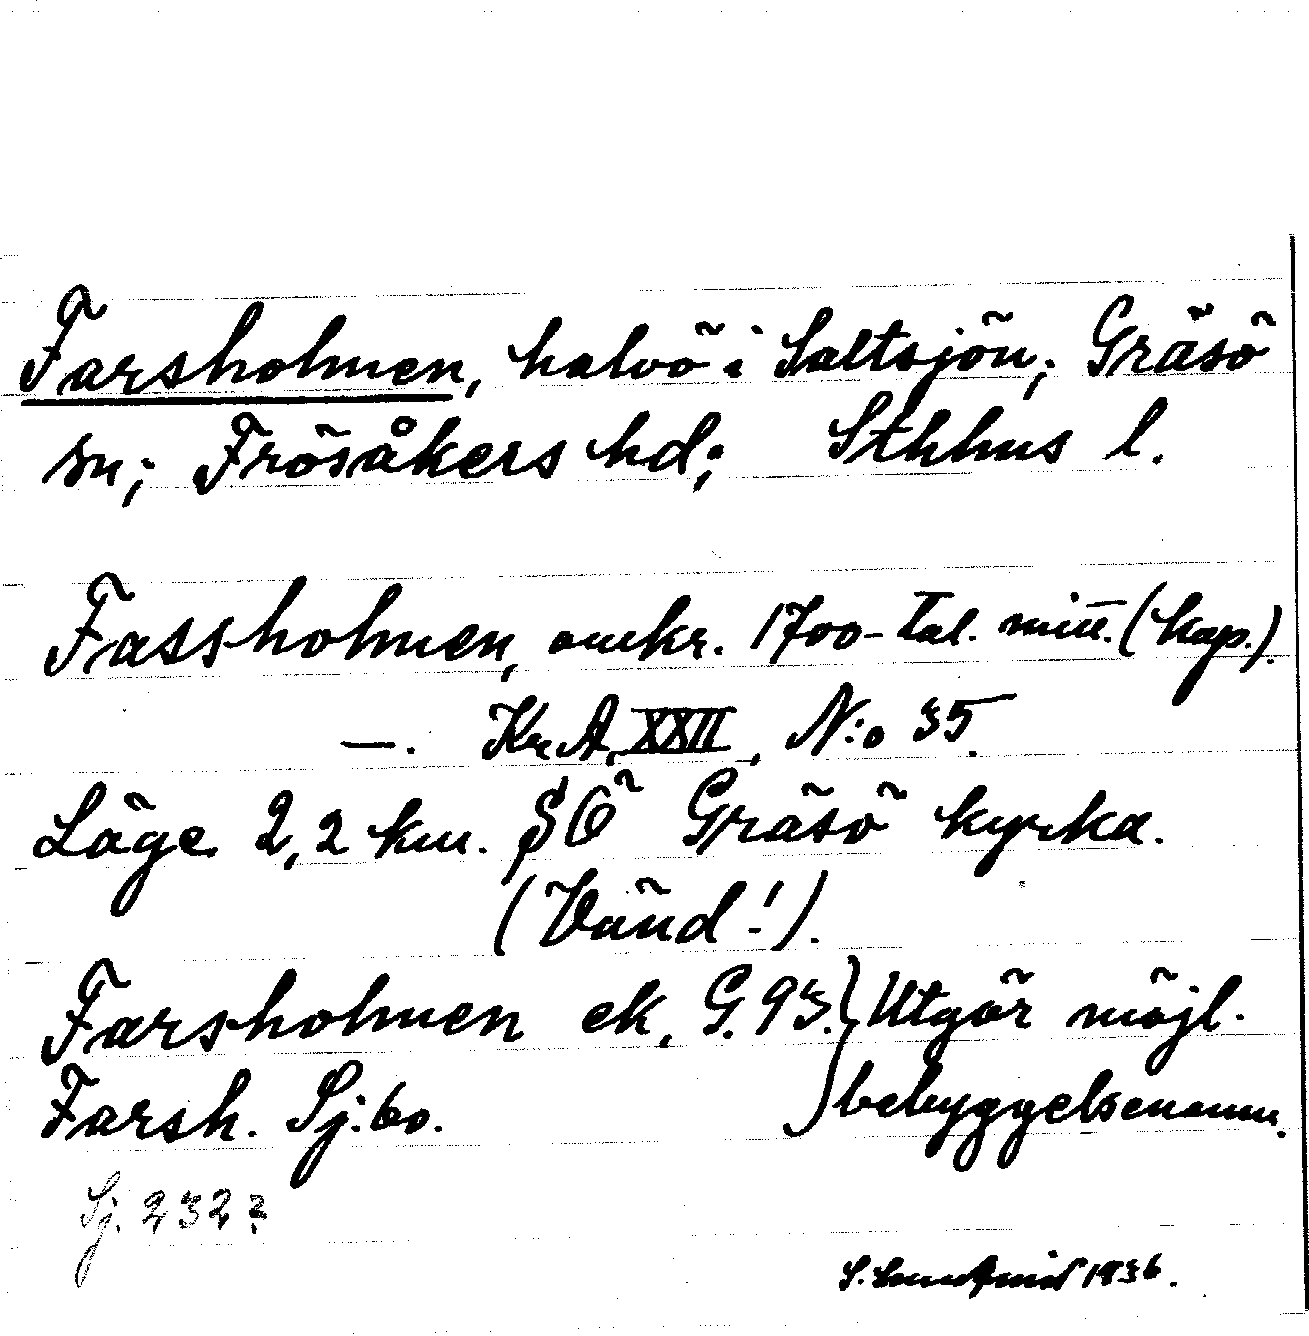 Farsholmen, halvö i Saltsjön; Gräsö
sn; Frösåkers hd; Sthhus l.
Fassholmen, omkr. 1700-tal. mitt. (kap.).
—. Kr. A. XXII, N:o 35.
Läge 2,2 km. SÖ Gräsö kyrka.
(Vänd!).
Farsholmen ek. G. 93. } Utgör möjl.
Farsh. Sj. 60. } bebyggelsenamn.
Sj. 232?
S. Lundqvist 1936.